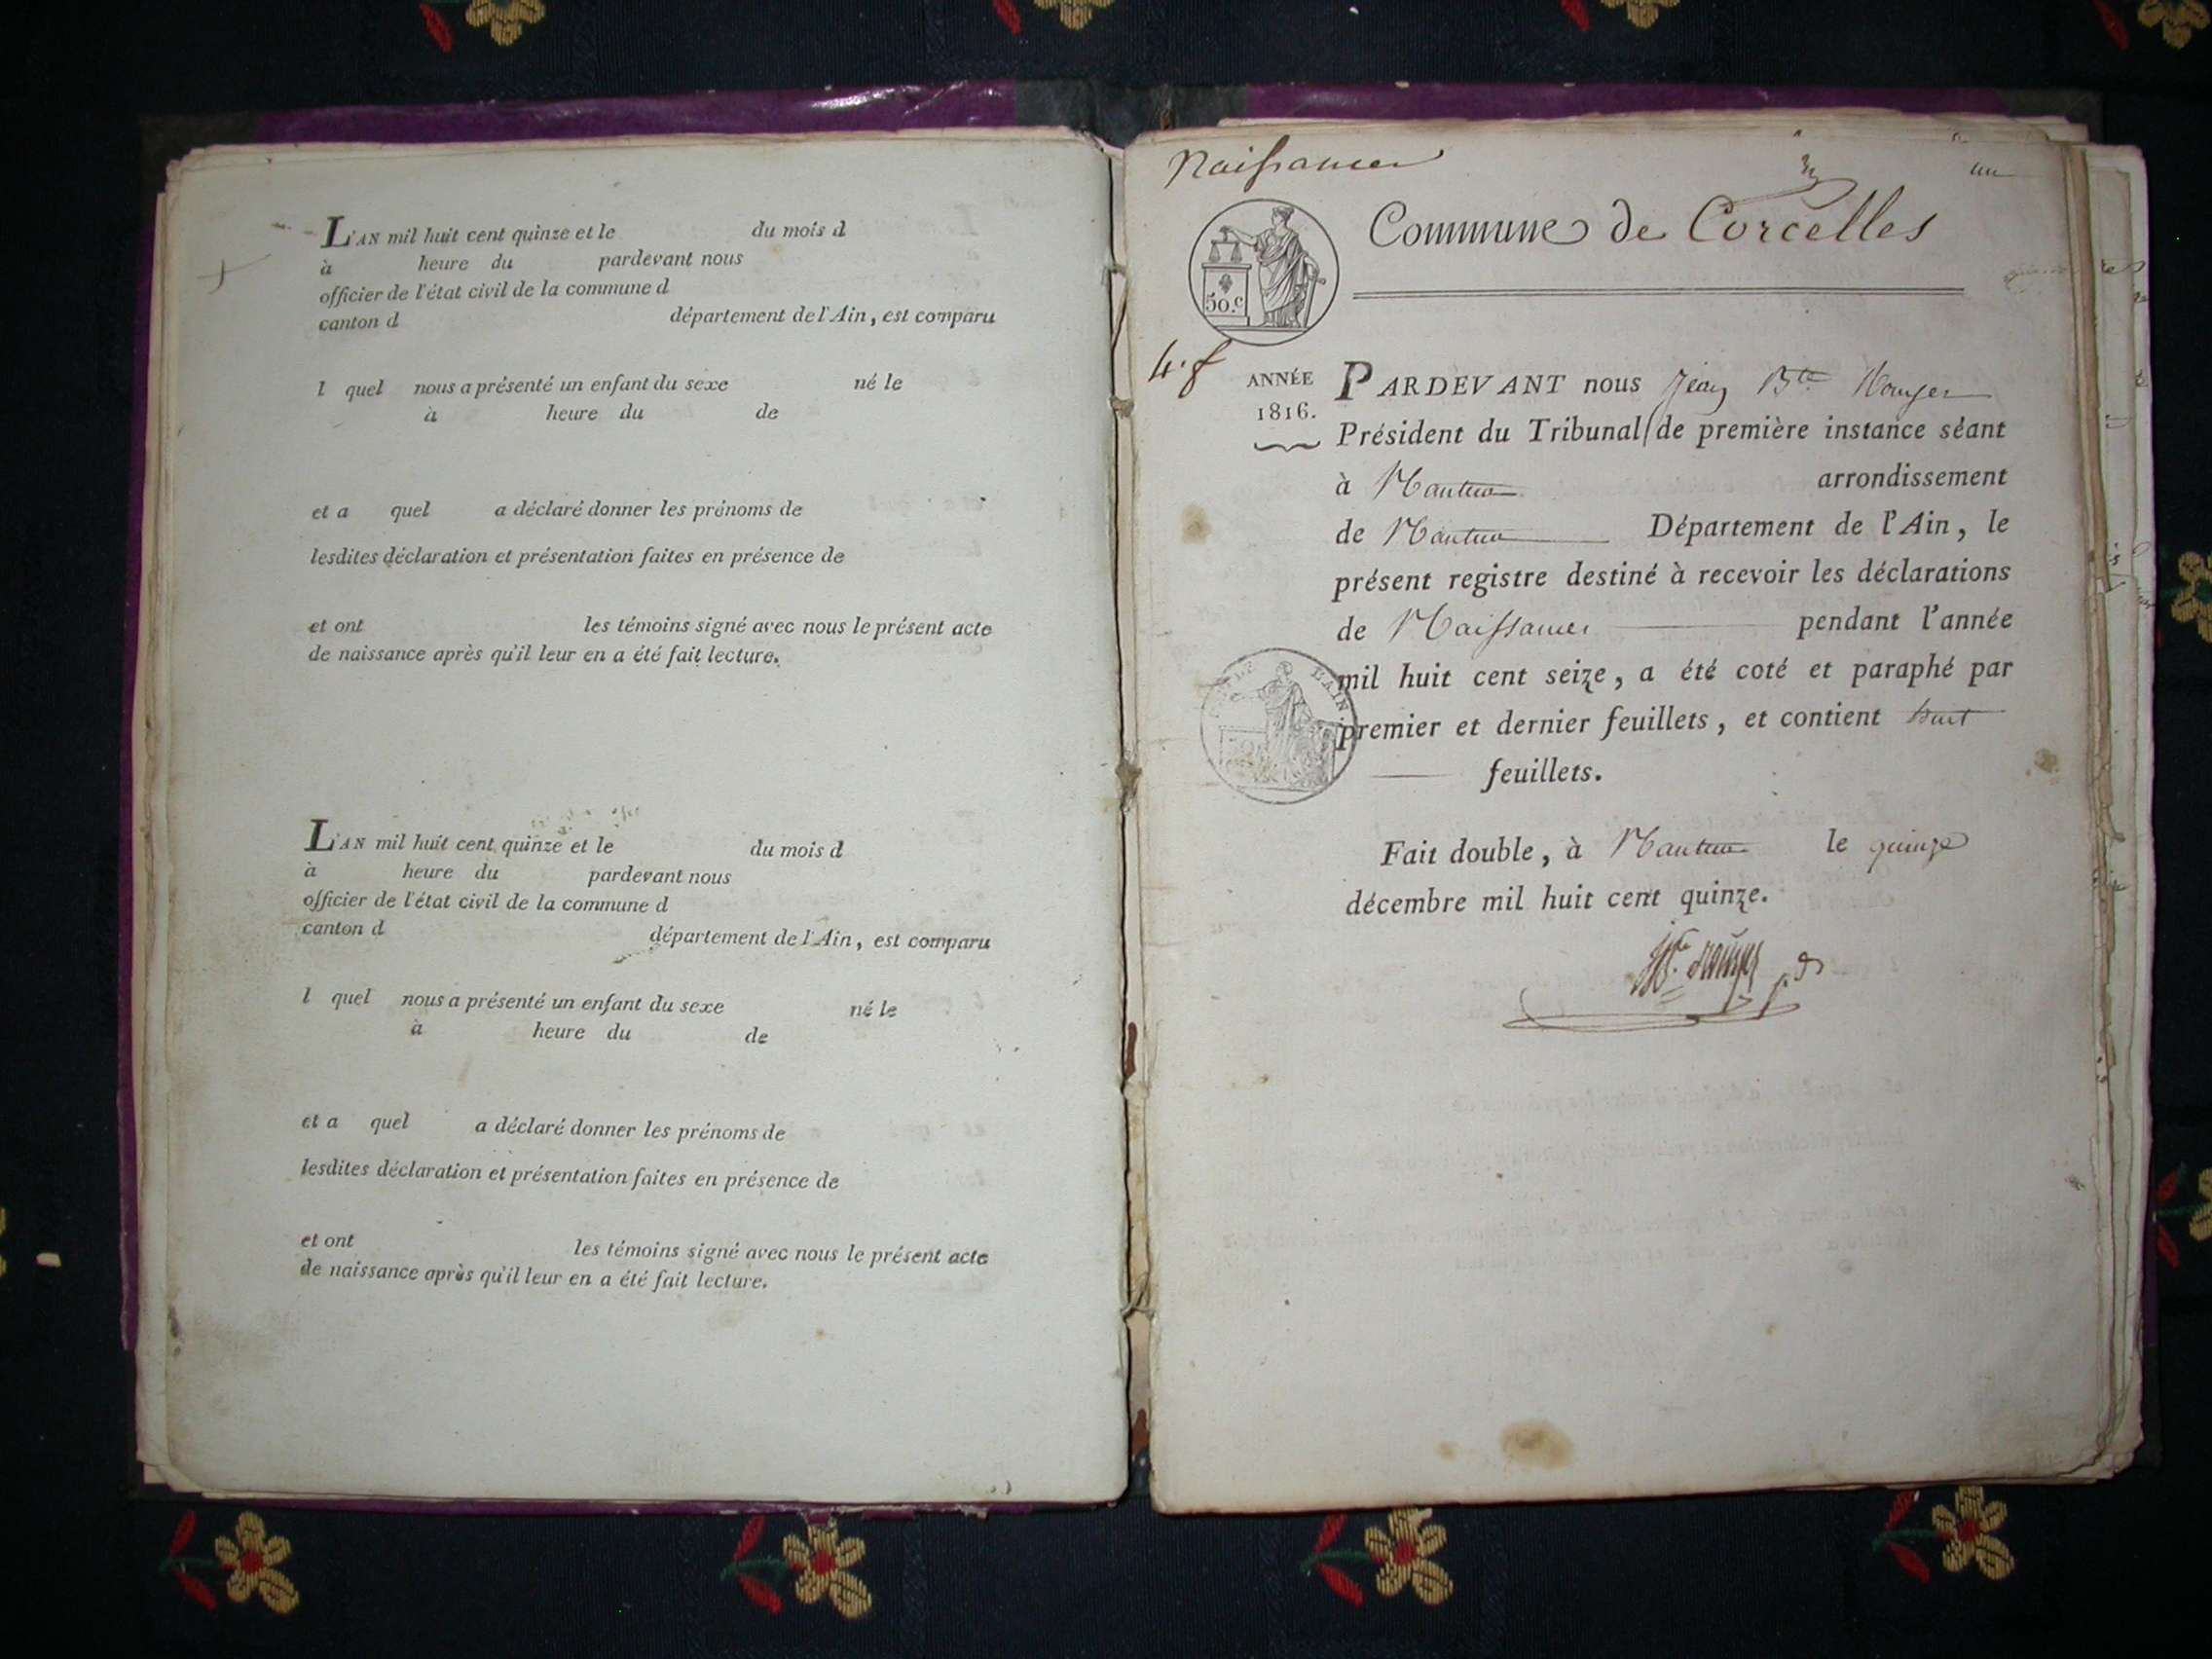 L'AN mil huit cent quinze et le du mois d
à heure du pardevant nous
officier de l'état civil de la commune d
canton d département de l'Ain, est comparu
l quel nous a présenté un enfant du sexe né le
à heure du de
et a quel a déclaré donner les prénoms de
lesdites déclaration et présentation faites en présence de
et ont les témoins signé avec nous le présent acte
de naissance après qu'il leur en a été fait lecture.
L'AN mil huit cent quinze et le du mois d
à heure du pardevant nous
officier de l'état civil de la commune d
canton d département de l'Ain, est comparu
l quel nous a présenté un enfant du sexe né le
à heure du de
et a quel a déclaré donner les prénoms de
lesdites déclaration et présentation faites en présence de
et ont les témoins signé avec nous le présent acte
de naissance après qu'il leur en a été fait lecture.
Naissances
un
Commune de Corcelles
50.c
ANNÉE
1816.
PARDEVANT nous Jean Bte
Président du Tribunal de première instance séant
à Nantua arrondissement
de Nantua Département de l'Ain, le
présent registre destiné à recevoir les déclarations
de Naissances pendant l'année
mil huit cent seize, a été coté et paraphé par
premier et dernier feuillets, et contient huit
feuillets.
Fait double, à Nantua le quinze
décembre mil huit cent quinze.